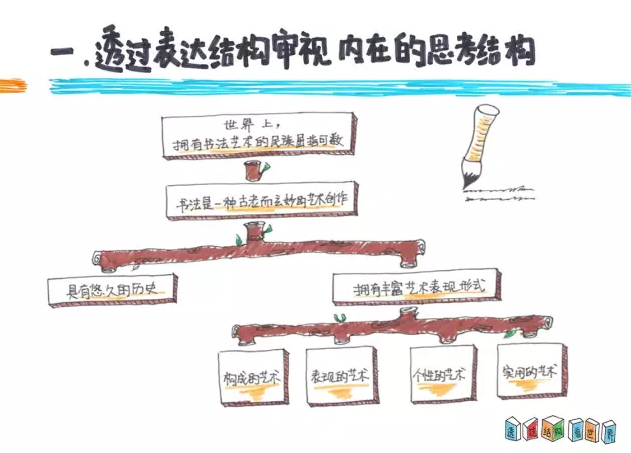 一.透过表达结构审视内在的思考结构
世界上，
拥有书法艺术的民族屈指可数
书法是一种古老而玄妙的艺术创作
具有悠久的历史
拥有丰富艺术表现形式
构成的艺术
表现的艺术
个性的艺术
实用的艺术
透过结构看世界